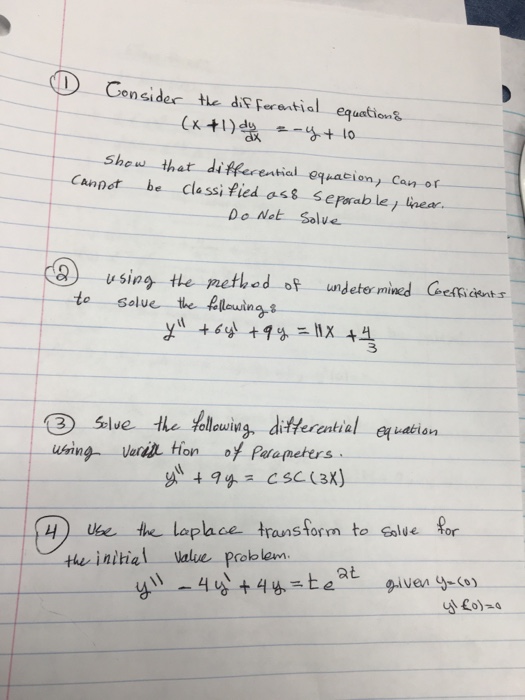 ① Consider the differential equation:
(x+1) dy/dx = -y + 10
Show that differential equation, can or
cannot be classified as: separable, linear.
Do Not Solve
② using the method of undetermined Coefficients
to solve the following:
y'' + 6y' + 9y = 11x + 4/3
③ Solve the following differential equation
using of Parameters.
y'' + 9y = csc(3x)
④ Use the Laplace transform to solve for
the initial value problem.
y'' - 4y' + 4y = te^2t given y=(0)
y'(0)=0